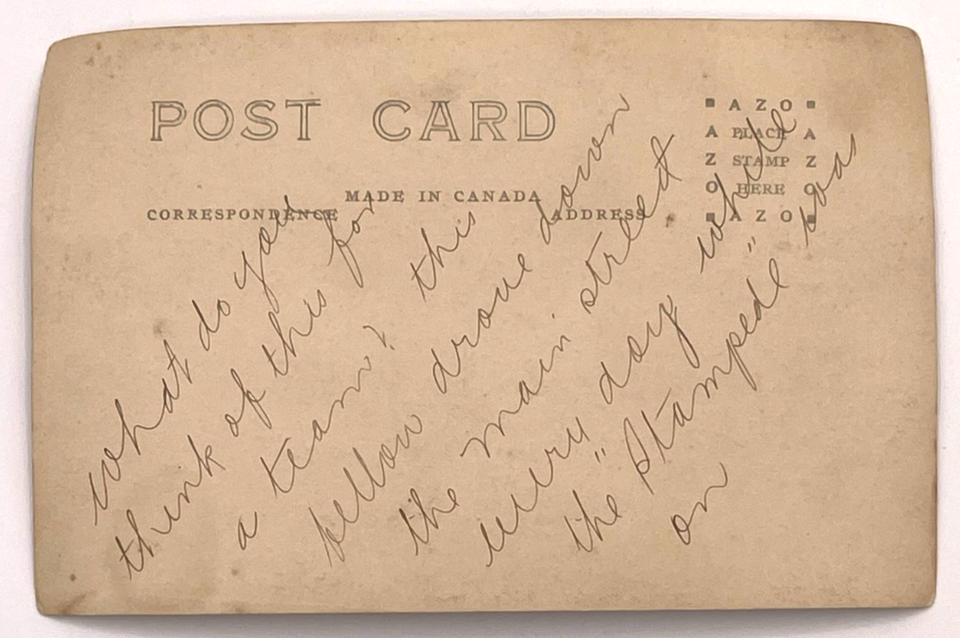 POST CARD
MADE IN CANADA
CORRESPONDENCE
ADDRESS
AZO
PLACE
STAMP
HERE
AZO
AZO
AZO
what do you
think of this for
a team? this
fellow drove down
the main street
every day while
the "Stampede" was
on